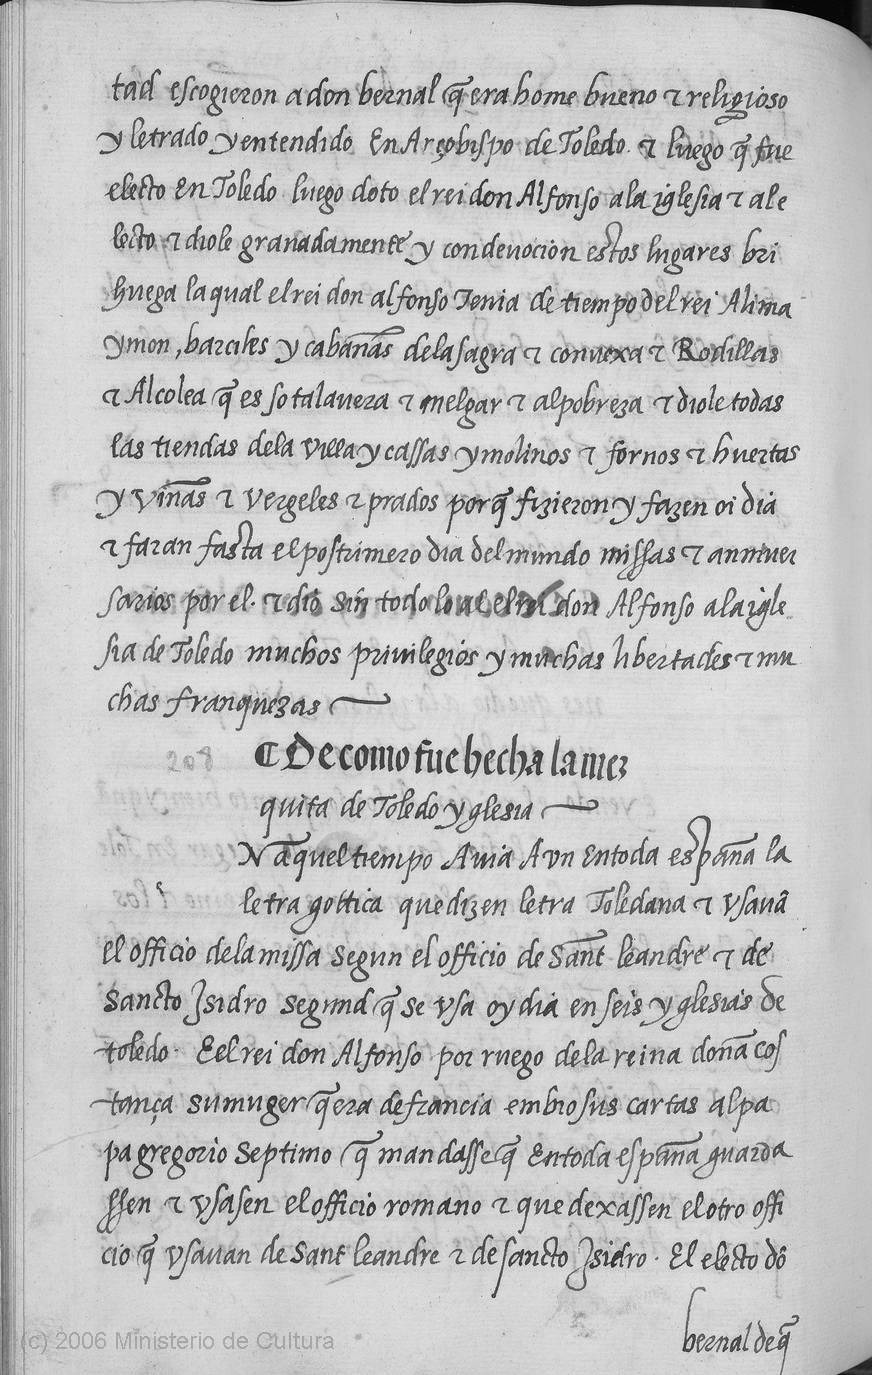 tad escogieron a don bernal q̃ era home bueno τ religioso
y letrado y entendido En Arçobispo de Toledo. τ luego q̃ fue
electo En Toledo luego doto el rei don Alfonso ala iglesia τ al e
lecto τ diole granadamente y con devocion estos lugares bri
huega la qual el rei don alfonso Tenia de tiempo del rei Alima
ymon, barciles y cabañas dela sagra τ covexa τ Rodillas
τ Alcolea q̃ es so talavera τ melgar τ alpobreza τ diole todas
las tiendas dela villa y cassas y molinos τ fornos τ huertas
y viñas τ vergeles τ prados porq̃ fizieron y fazen oi dia
τ faran fasta el postrimero dia del mundo missas τ anniver
sarios por el. τ dio sin todo lo al el rei don Alfonso ala igle
sia de Toledo muchos privilegios y muchas libertades τ mu
chas franquezas
208
¶ De como fue hecha la mez
quita de Toledo yglesia
N aquel tiempo Avia Avn En toda españa la
letra gottica que dizen letra Toledana τ vsavã
el officio dela missa segun el officio de Sant leandre τ de
Sancto Isidro segund q̃ se vsa oy dia en seis yglesias de
toledo. E el rei don Alfonso por ruego dela reina doña cos
tança su muger q̃ era de francia embio sus cartas al pa
pa gregorio Septimo q̃ mandasse q̃ En toda españa guarda
ssen τ vsasen el officio romano τ que dexassen el otro offi
cio q̃ vsavan de Sant leandre τ de sancto Isidro. El electo dõ
bernal de q̃
(c) 2006 Ministerio de Cultura